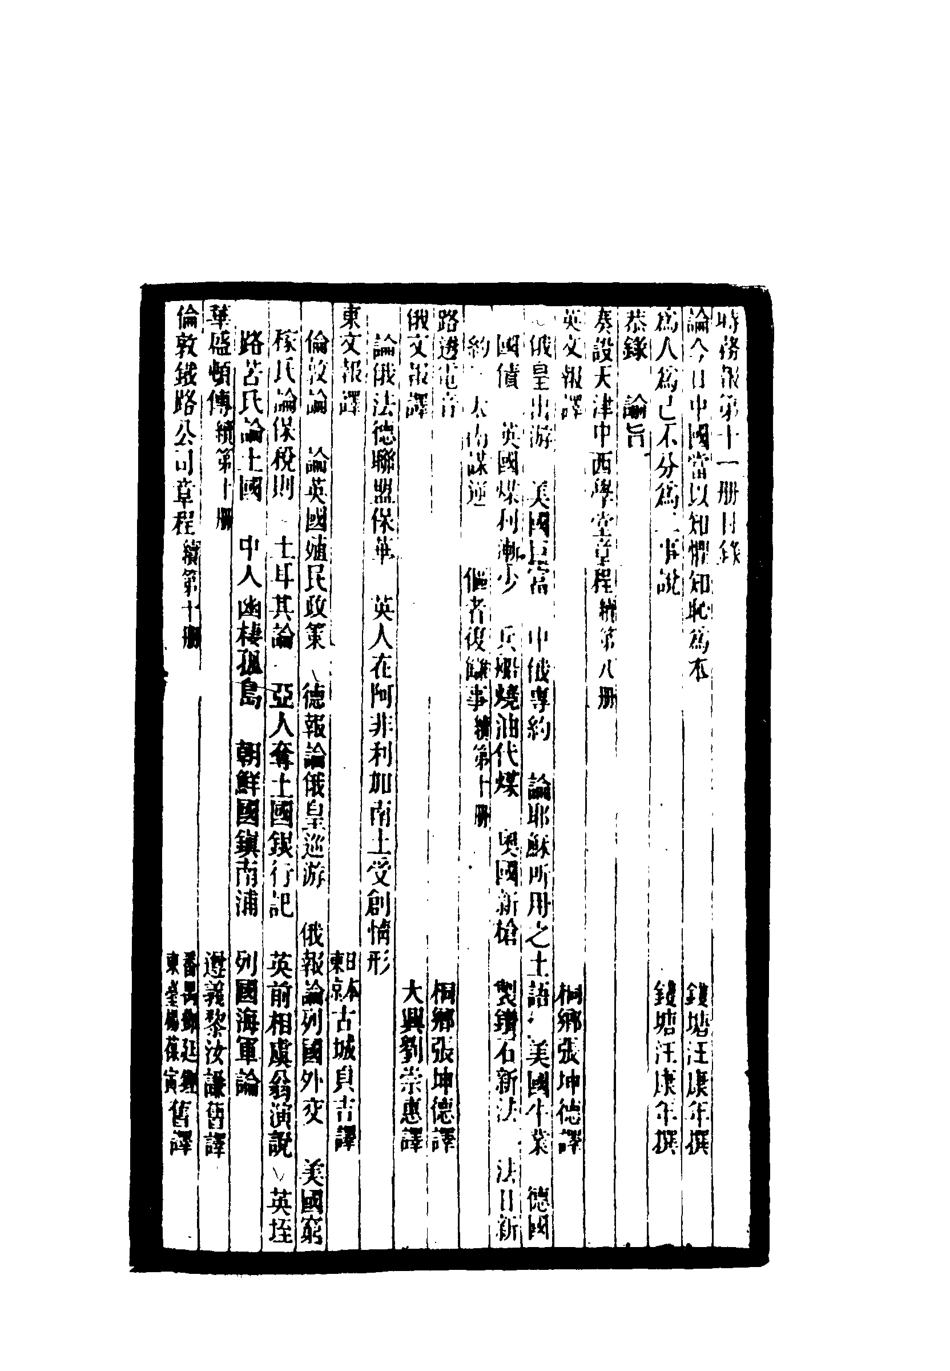 時務報第十一册目錄
論今日中國當以知懼知恥爲本　錢塘汪康年撰
爲人爲己不分爲二事說　錢塘汪康年撰
恭錄　諭旨
奏設天津中西學堂章程續第八册
英文報譯　桐鄉張坤德譯
俄皇出游　美國巨富　中俄專約　論耶穌所用之土語　美國牛業　德國
國債　英國煤利漸少　兵船燒油代煤　奧國新槍　製鑽石新法　法日新
約　太　謀逆　傴者復讎事續第十册
路透電音　桐鄉張坤德譯
俄文報譯　大興劉崇惠譯
論俄法德聯盟保華　英人在阿非利加南土受創情形
東文報譯　日本東京古城貞吉譯
倫敦論　論英國殖民政策　德報論俄皇巡游　俄報論列國外交　美國窮
稼氏論保稅則　土耳其論　亞人奪土國銀行記　英前相虞翁演說　英埕
路苦氏論土國　中人幽棲孤島　朝鮮國鎮南浦　列國海軍論
華盛頓傳續第十册　遵義黎汝謙舊譯
倫敦鐵路公司章程續第十册　番禺鄭廷鏗東臺楊葆寅舊譯